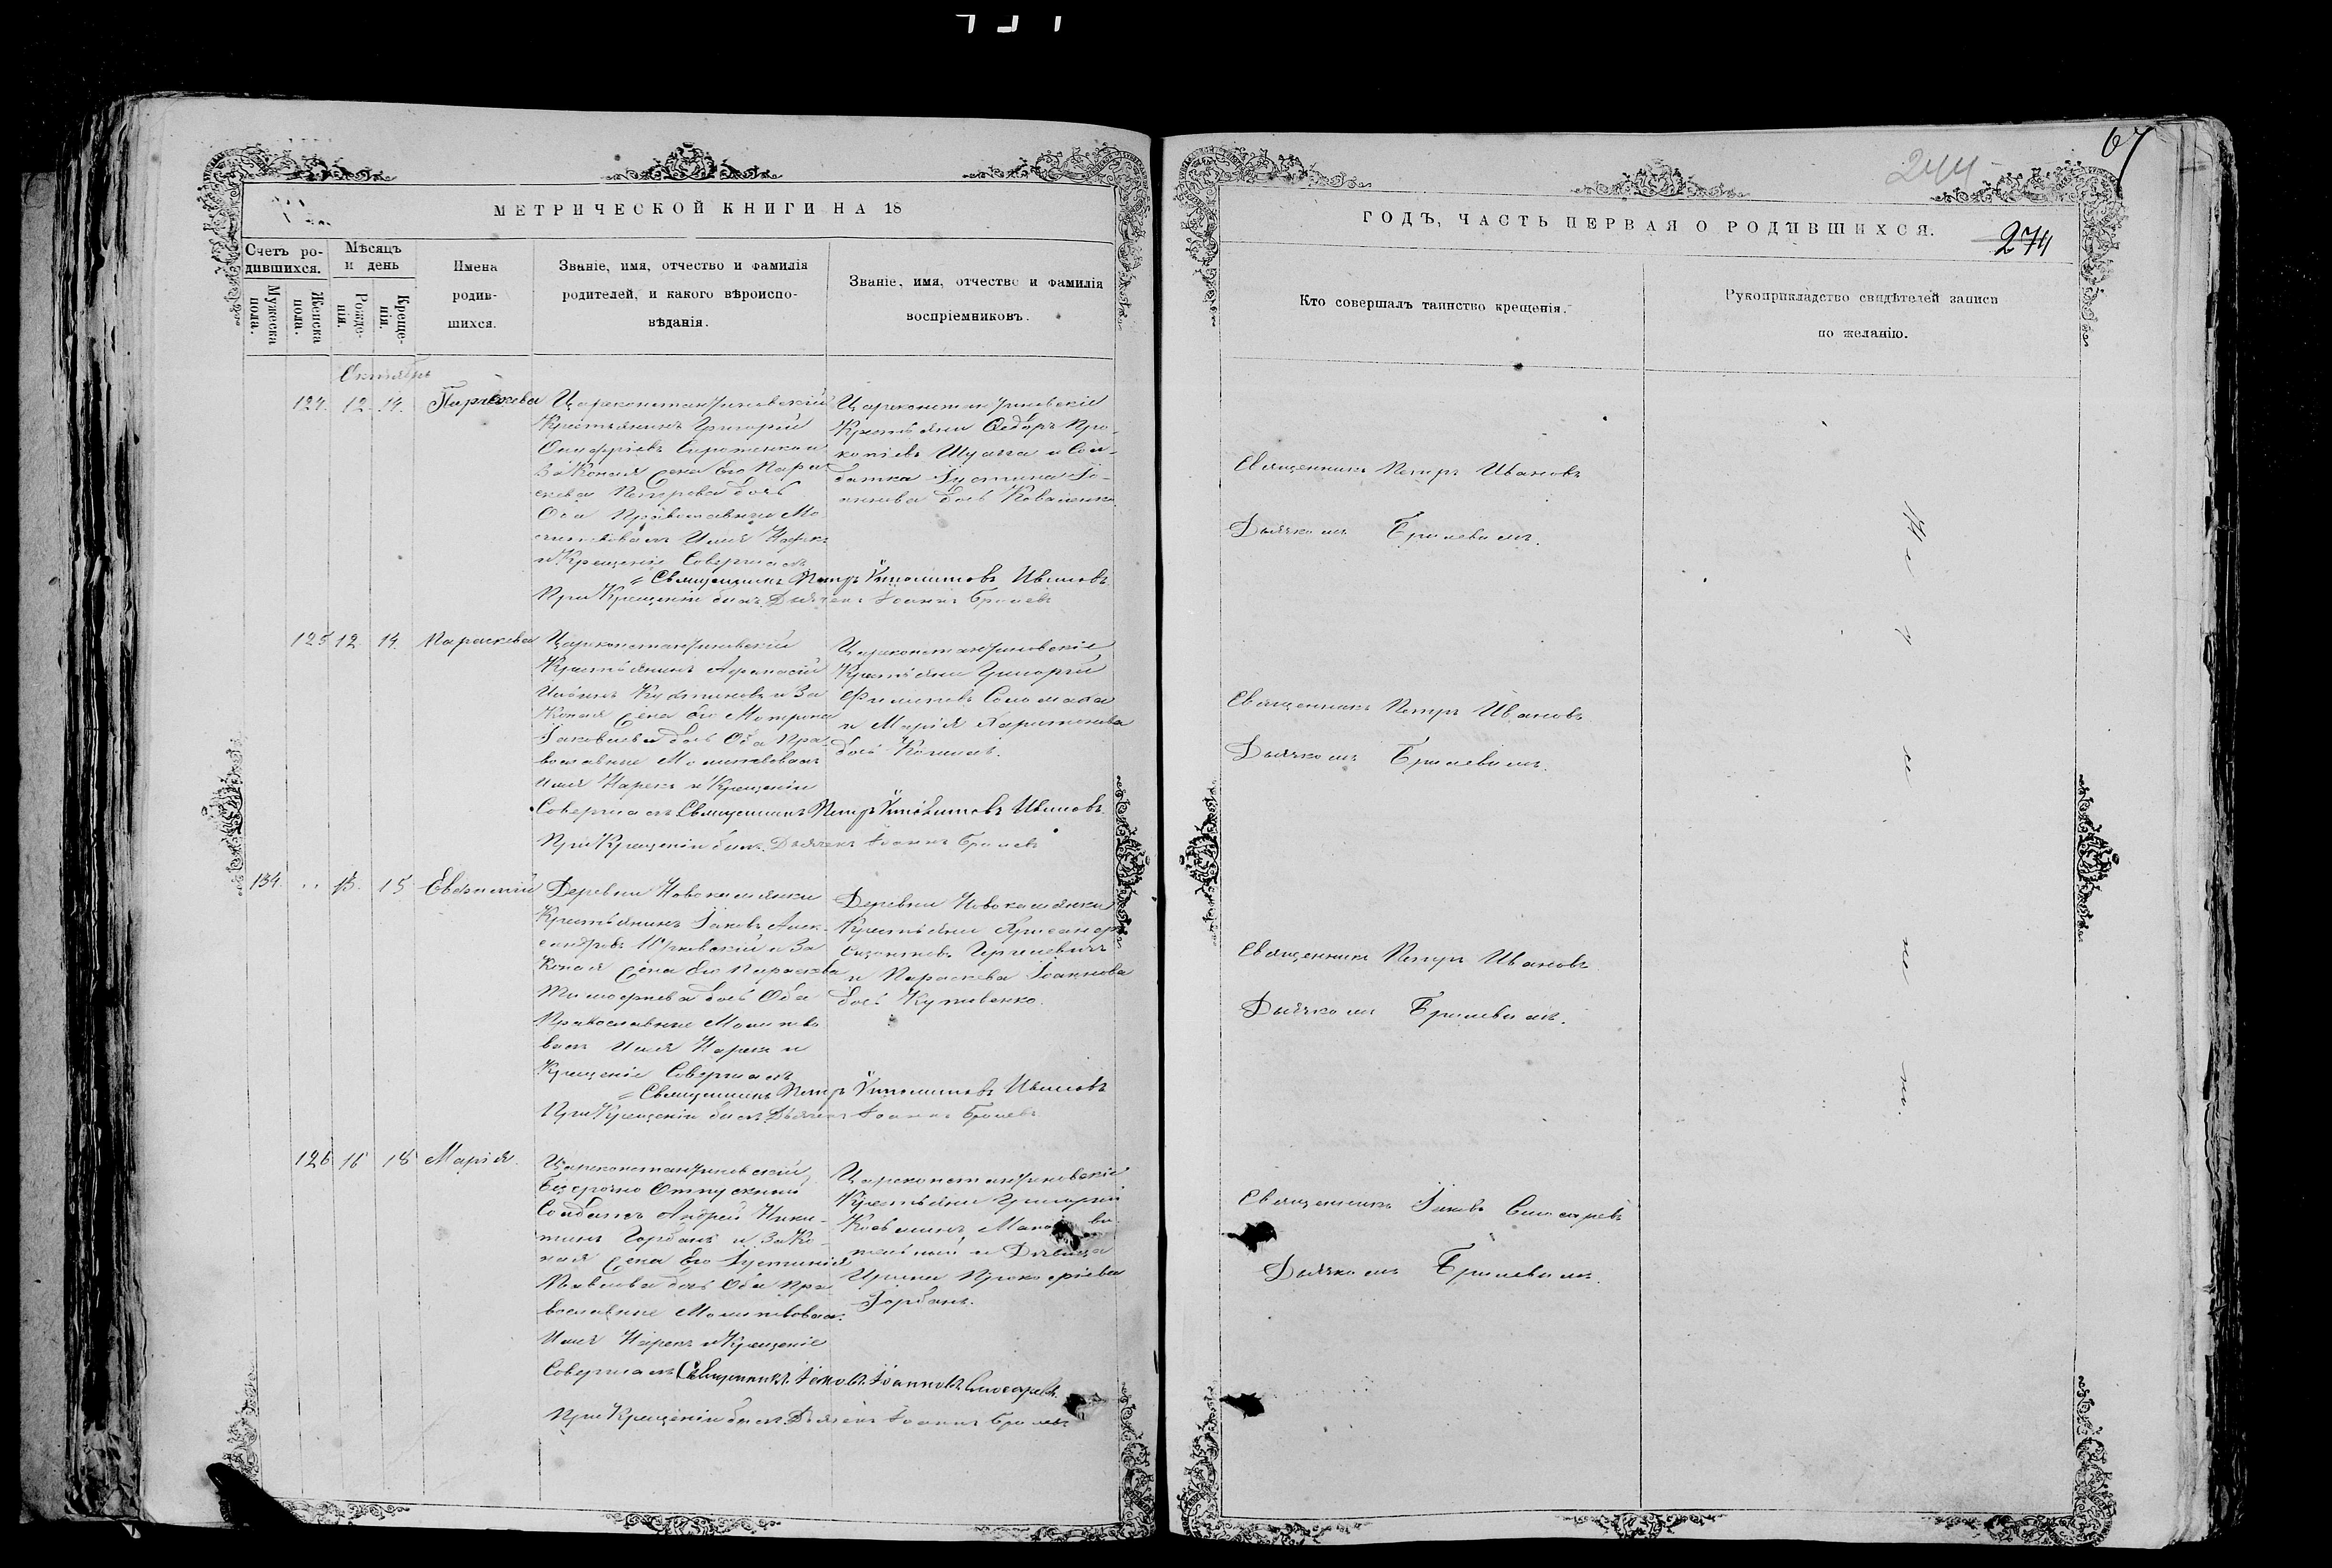 67
244
МЕТРИЧЕСКОЙ КНИГИ НА 18
ГОДЪ, ЧАСТЬ ПЕРВАЯ О РОДИВШИХСЯ.
274
Счетъ ро-
дившихся.
Мужеска пола.
Женска пола.
Мѣсяцъ
и день
Рожде-
нія.
Креще-
нія.
Имена
родив-
шихся.
Званіе, имя, отчество и фамилія
родителей, и какого вѣроиспо-
вѣданія.
Званіе, имя, отчество и фамилія
воспріемниковъ.
Кто совершалъ таинство крещенія.
Рукоприкладство свидѣтелей записи
по желанію.
Октябрь
124. 12. 14. Параскева
Цареконстантиновскій
Крестьянинъ Григорій
Онуфріевъ Сиротенко и
Законая Жена Его Пара
скева Петрова дочь
Оба Православные Мо
литвовалъ Имя Нарекъ
и Крещеніе Совершалъ
Священникъ Петръ Ивановъ
При Крещеніи былъ Дьячекъ Іоаннъ Брилевъ
Цареконстантиновскіе
Крестьяни Ѳедоръ Про-
копіевъ и Сол-
датка Іустина Іо-
аннова дочь Коваленко
Священникъ Петръ Ивановъ
Дьячкомъ Брилевымъ.
125 12. 14. Параскева
Цареконстантиновскій
Крестьянинъ Афанасій
и За
Коная Жена Его Матрона
Іаковлева дочь Оба Пра-
вославные Молитвовалъ
Имя Нарекъ и Крещеніи
Совершалъ Священникъ Петръ Ивановъ
При Крещеніи былъ Дьячекъ Іоаннъ Брилевъ
Цареконстантиновскіе
Крестьяни Григорій
Филиповъ Соломаха
и Марія Харитонова
дочь
Священникъ Петръ Ивановъ
Дьячкомъ Брилевымъ.
134. 13. 15 Евѳимій
Деревни Новокамянки
Крестьянинъ Іаковъ Алек-
сандровъ Юрковскій и За
Коная Жена Его Параскева
Тимофіева дочь Оба
Православные Молитво
валъ Имя Нарекъ и
Крещеніе Совершалъ
Священникъ Петръ Ивановъ
При Крещеніи былъ Дьячекъ Іоаннъ Брилевъ
Деревни Новокамянки
Крестьяни
и Параскева Іоаннова
дочь
Священникъ Петръ Ивановъ
Дьячкомъ Брилевымъ.
126 16 18 Марія.
Цареконстантиновскій
Безсрочно Отпускный
Солдатъ Андрей Ники-
тинъ Горбань и Зако-
ная Жена Его Іустинія
Павлова дочь Оба Пра
вославные Молитвовалъ
Имя Нарекъ и Крещеніе
Совершалъ Священникъ Іаковъ Іоанновъ Слюсаревъ.
При Крещеніи былъ Дьячекъ Іоаннъ Брилевъ
Цареконстантиновскіе
Крестьяни Григорій
Косьминъ
и Дѣвица
Ирина Прокофіева
Горбань.
Священникъ Іаковъ Слюсаревъ
Дьячкомъ Брилевымъ.